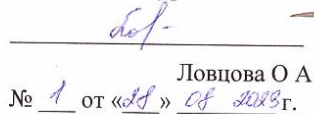 Ловцова О А
№ 1 от «28» 08 2023 г.